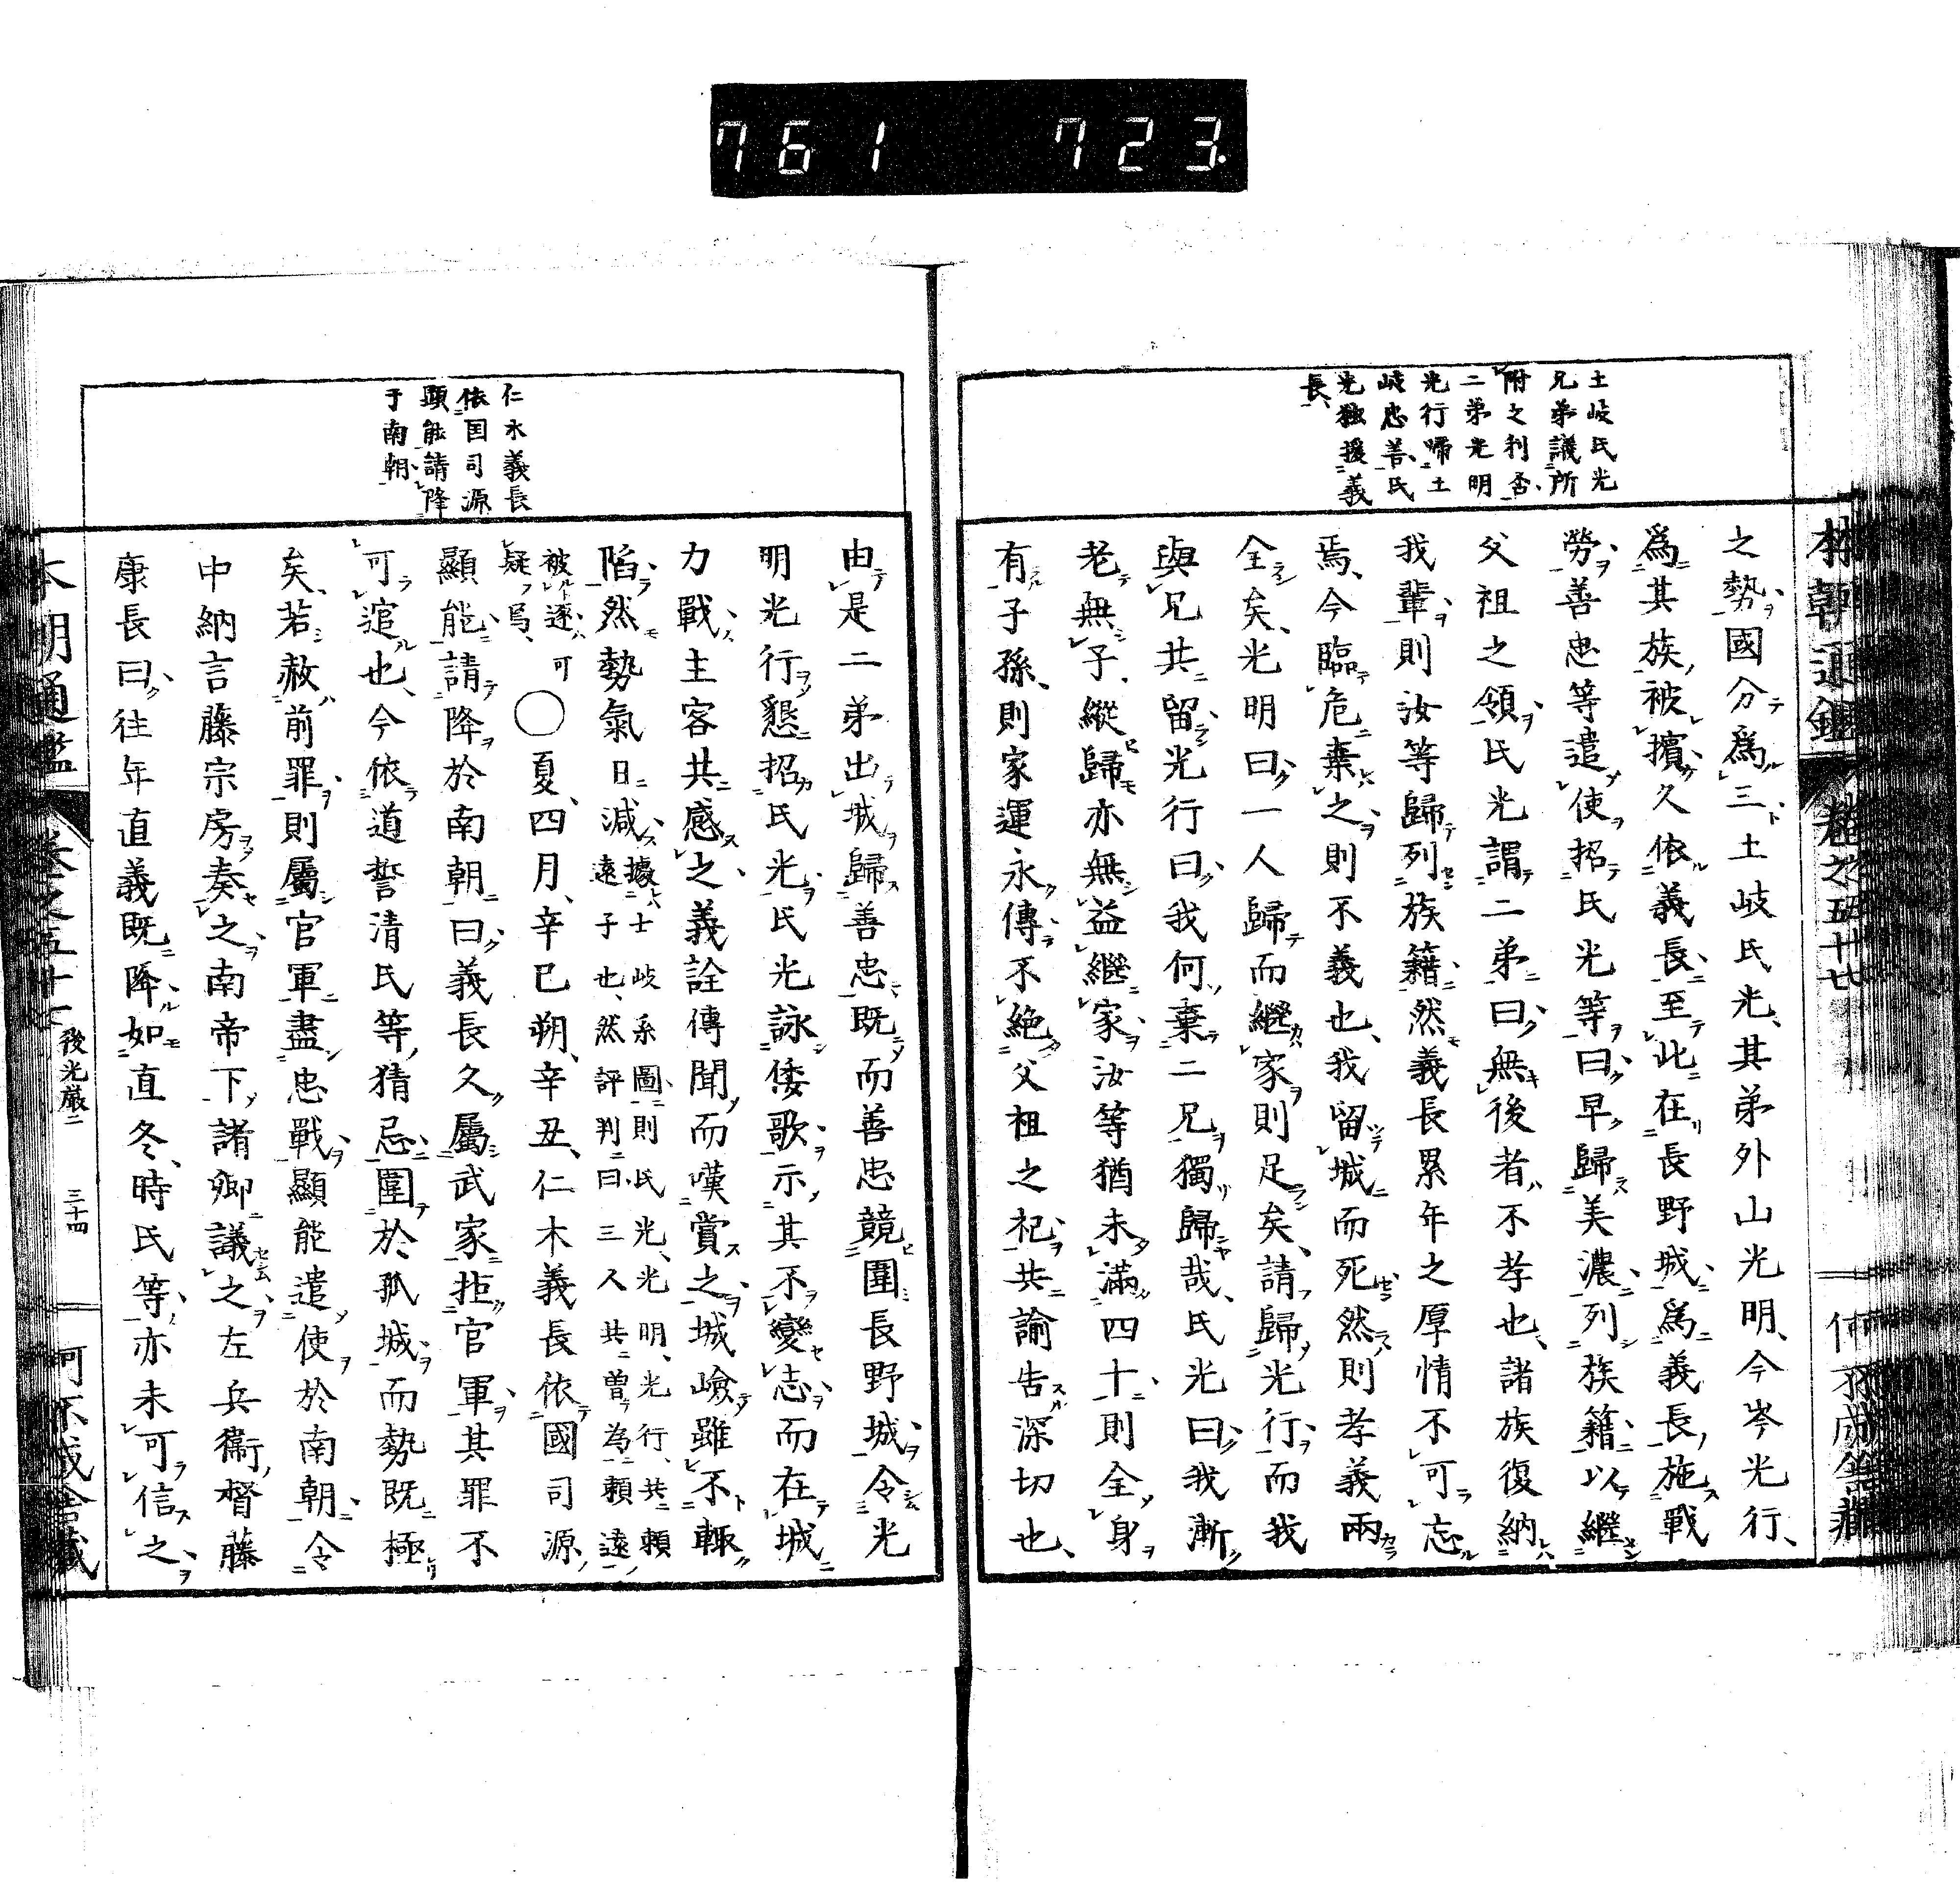 761 723.
土岐氏光
兄弟議所
附之利否
二弟光明
光行帰土
岐忠善氏
光独援義
長
之勢國分爲三土岐氏光、其弟外山光明、今岑光行、
爲其族被擯久依義長至此在長野城爲義長施戰
勞善忠等遣使招氏光等曰早歸美濃列族籍以繼
父祖之領氏光謂二弟曰無後者不孝也諸族復納
我輩則汝等歸列族籍然義長累年之厚情不可忘
焉、今臨危棄之則不義也、我留城而死然則孝義兩
全矣、光明曰一人歸而繼家則足矣、請歸光行而我
與兄共留光行曰我何棄二兄獨歸哉、氏光曰我漸
老無子、縱歸亦無益繼家汝等猶未滿四十則全身
有子孫、則家運永傳不絶父祖之祀共諭告深切也、
仁木義長
依国司源
顕能請降
于南朝
由是二弟出城歸善忠既而善忠競圍長野城令光
明光行懇招氏光氏光詠倭歌示其不變志而在城
力戰主客共感之義詮傳聞而嘆賞之城嶮雖不輙
陷然勢氣日減據士岐系圖則氏光、光明、光行、共賴
遠子也、然評判曰三人共曽為賴遠
被逐、可
疑焉、
○夏、四月、辛巳朔、辛丑、仁木義長依國司源
顯能請降於南朝曰義長久屬武家拒官軍其罪不
可逭也、今依道誓清氏等猜忌圍於孤城而勢既極
矣、若赦前罪則屬官軍盡忠戰顯能遣使於南朝令
中納言藤宗房奏之南帝下諸卿議之左兵衞督藤
康長曰往年直義既降如直冬、時氏等亦未可信之
本朝通鑑
卷之五十七
後光嚴二
三十四